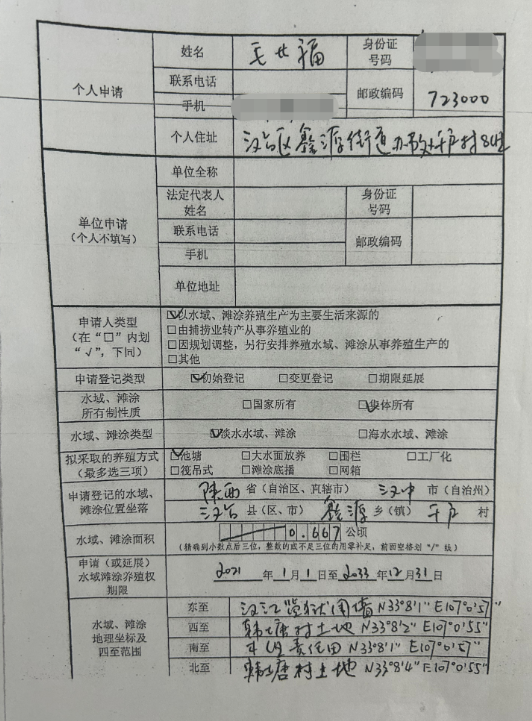 个人申请
姓名 王世福 身份证号码
联系电话 邮政编码 723000
手机
个人住址 汉台区鑫源街道办 村
单位申请
(个人不填写)
单位全称
法定代表人姓名 身份证号码
联系电话 邮政编码
手机
单位地址
申请人类型
(在“□”内划“√”,下同)
☑以水域、滩涂养殖生产为主要生活来源的
□由捕捞业转产从事养殖业的
□因规划调整,另行安排养殖水域、滩涂从事养殖生产的
□其他
申请登记类型 ☑初始登记 □变更登记 □期限延展
水域、滩涂所有制性质 □国家所有 ☑集体所有
水域、滩涂类型 ☑淡水水域、滩涂 □海水水域、滩涂
拟采取的养殖方式
(最多选三项)
☑池塘 □大水面放养 □围栏 □工厂化
□筏吊式 □滩涂底播 □网箱
申请登记的水域、滩涂位置坐落
陕西 省(自治区、直辖市) 汉中 市(自治州)
汉台 县(区、市) 鑫源 乡(镇) 村
水域、滩涂面积 0.667 公顷
(精确到小数点后三位,整数的或不足三位的用零补足,前面空格划“/”线)
申请(或延展)水域滩涂养殖权期限
2021 年 1 月 1 日至 2033 年 12 月 31 日
水域、滩涂地理坐标及四至范围
东至 汉江监狱围墙 N33°8'1" E107°0'57"
西至 韩塘村土地 N33°8'2" E107°0'55"
南至 责任田 N33°8'1" E107°0'57"
北至 韩塘村土地 N33°8'4" E107°0'55"